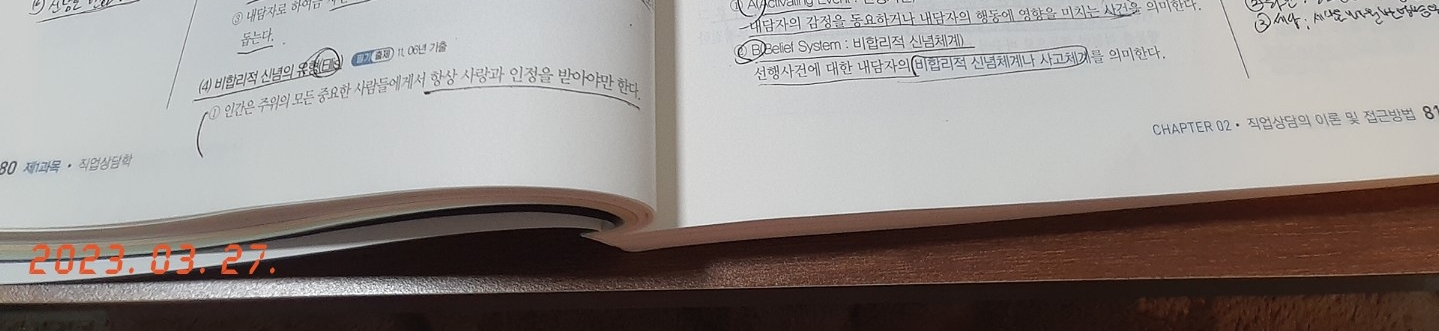 ③ 내담자로 하여금
돕는다.
(4) 비합리적 신념의 유형(Ellis) 필기 출제 11, 06년 기출
① 인간은 주위의 모든 중요한 사람들에게서 항상 사랑과 인정을 받아야만 한다.
80 제1과목 • 직업상담학
① A(Activating Event :
내담자의 감정을 동요하거나 내담자의 행동에 영향을 미치는 사건을 의미한다.
② B(Belief System : 비합리적 신념체계)
선행사건에 대한 내담자의 비합리적 신념체계나 사고체계를 의미한다.
CHAPTER 02 • 직업상담의 이론 및 접근방법 81
2023. 03. 27.